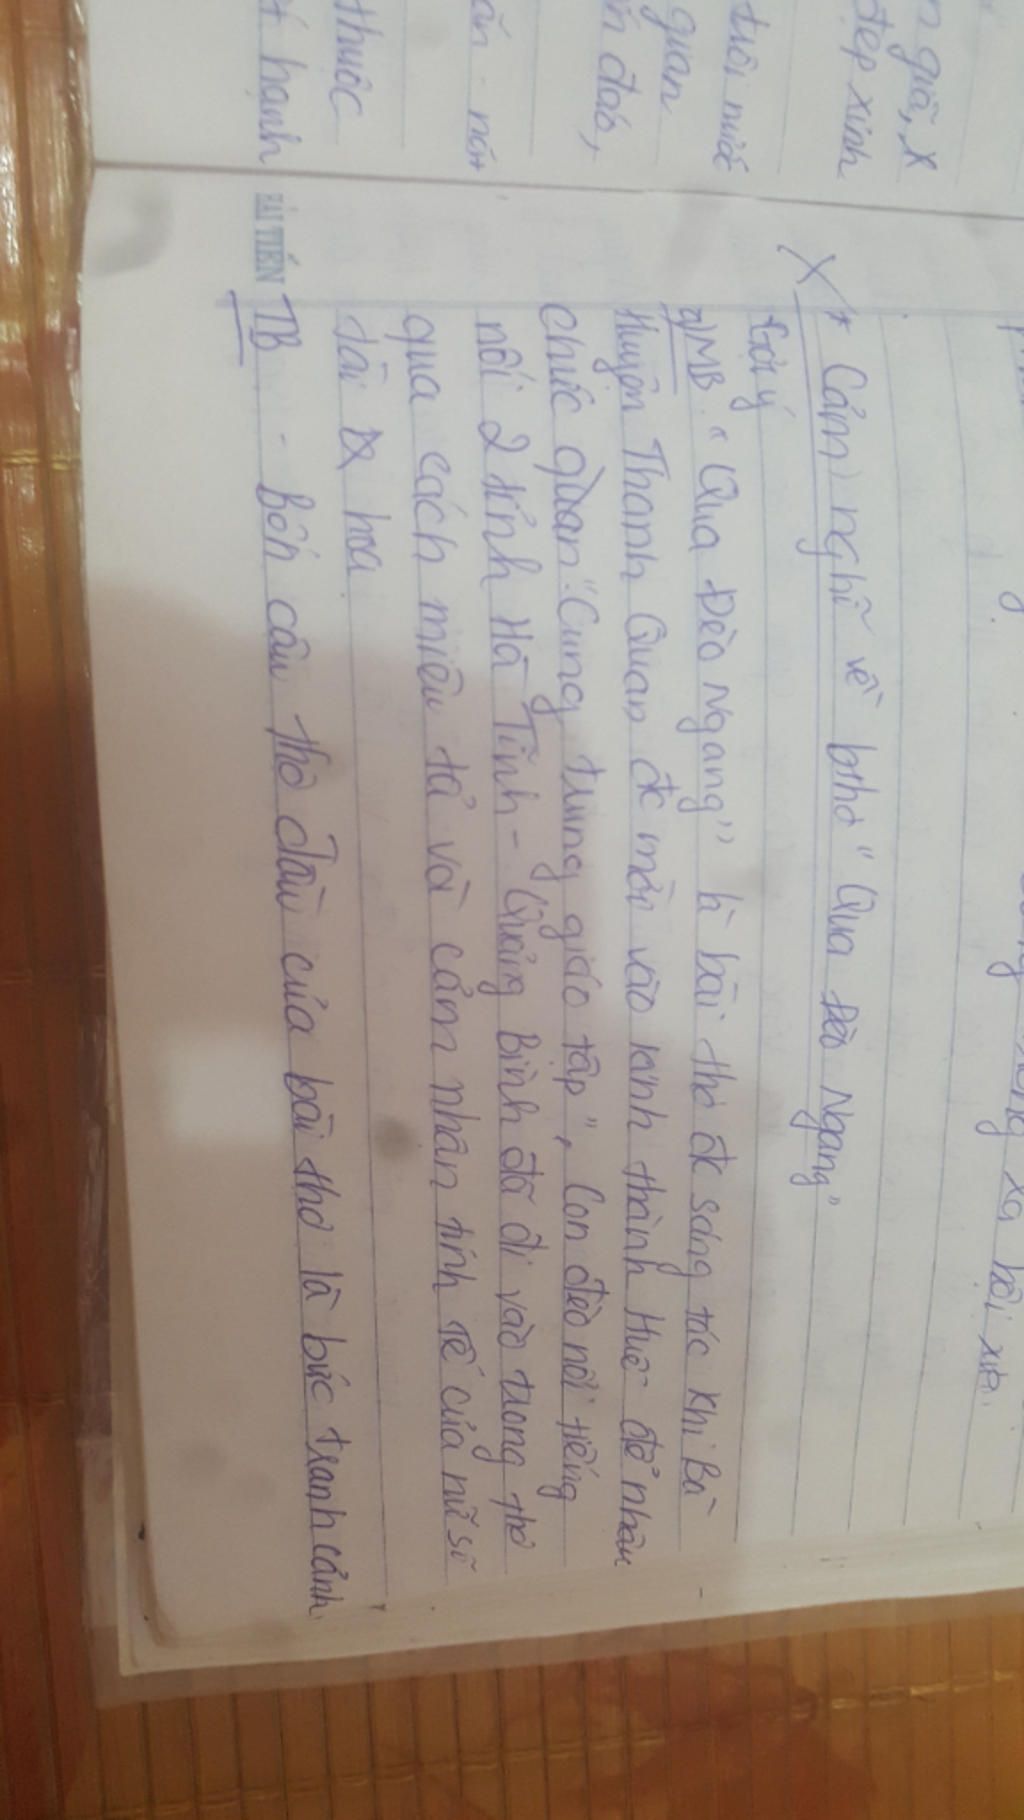 n giã, x
đẹp xinh
tuôi nước
quan
n đao,
ăn - nát
thuộc
t hạnh
xã hội xưa.
X * Cảm nghĩ về bthơ " Qua Đèo Ngang"
Gợi ý
a) MB. " Qua Đèo Ngang" là bài thơ đc sáng tác khi Bà
Huyện Thanh Quan đc mời vào kinh thành Huế để nhận
chức quan " Cung trung giáo tập", Con đèo nổi tiếng
nối 2 tỉnh Hà Tĩnh - Quảng Bình đã đi vào trong thơ
qua cách miêu tả và cảm nhận tinh tế của nữ sĩ
tài hoa
HẢI TIẾN
TB - Bốn câu thơ đầu của bài thơ là bức tranh cảnh